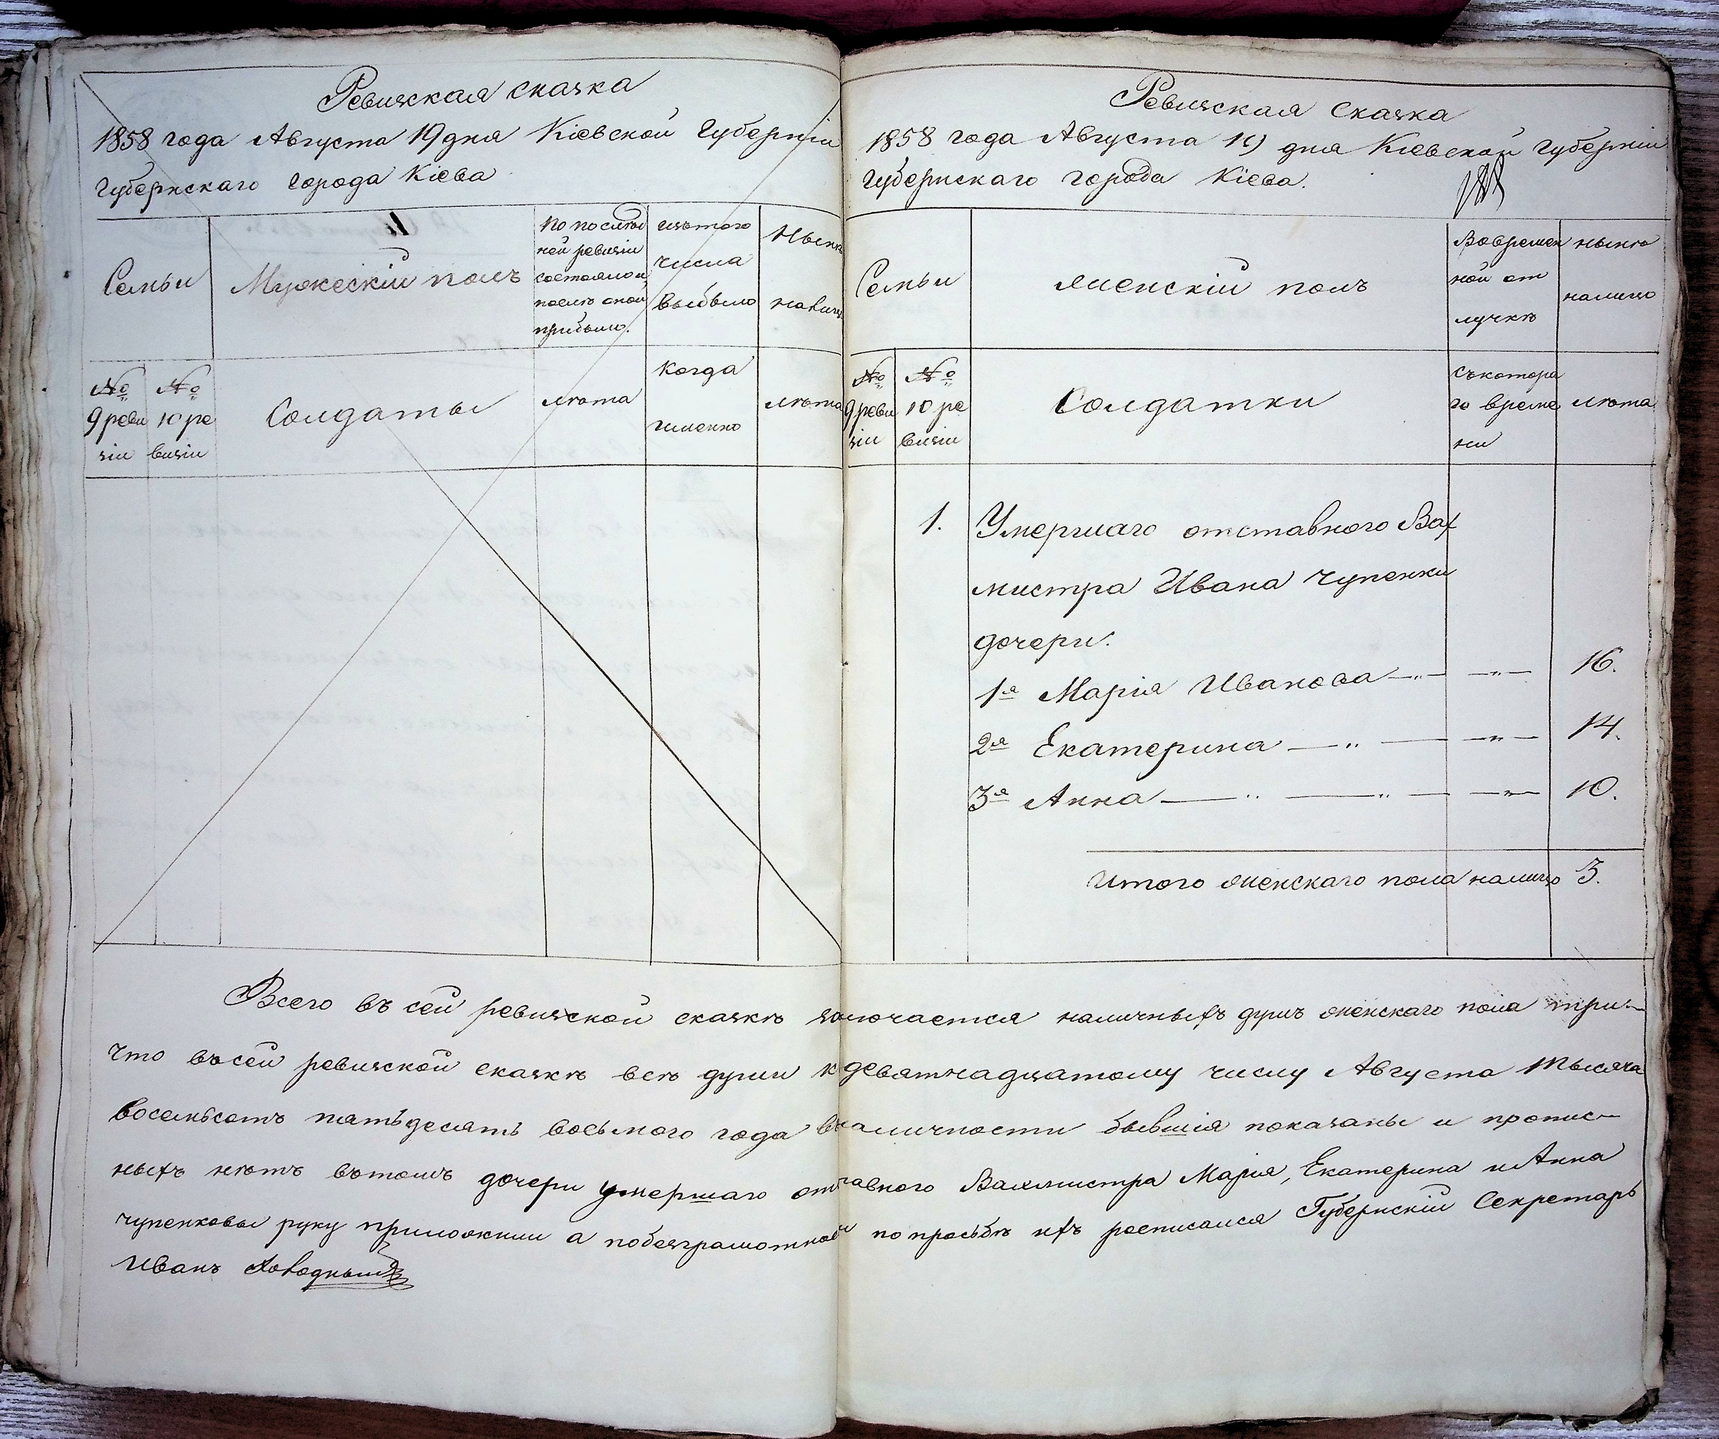 Ревизская сказка
1858 года Августа 19 дня Кіевской Губерніи
Губернскаго города Кіева
Семьи
Мужескій полъ
По послѣд
ней ревизіи
состояло и
послѣ оной
прибыло.
изъ того
числа
выбыло
Нынѣ
налицо
№ 9 реви зіи
№ 10 ре визіи
Солдаты
лѣта
когда
именно
лѣта
Ревизская сказка
1858 года Августа 19 дня Кіевской Губерніи
Губернскаго города Кіева.
Семьи
женскій полъ
Во времен
ной от
лучкѣ
нынѣ
налицо
№ 9 реви зіи
№ 10 ре визіи
Солдатки
съ котора
го време
ни
лѣта
1. Умершаго отставного Вах
мистра Ивана Чупенки
дочери.
1я Марія Иванова —„— —„— 16.
2я Екатерина —„— —„— 14.
3я Анна —„— —„— —„— 10.
Итого женскаго пола налицо 3.
Всего въ сей ревизской сказкѣ заключается наличныхъ душъ женскаго пола три—
Что въ сей ревизской сказкѣ всѣ души к девятнадцатому числу Августа тысяча
восемьсотъ пятьдесятъ восьмого года в наличности бывшія показаны и пропис—
ныхъ нѣтъ въ томъ дочери умершаго отставного Вахмистра Марія, Екатерина и Анна
Чупенковы руку приложили а по безграмотной по просьбѣ ихъ росписался Губернскій Секретарь
Иванъ